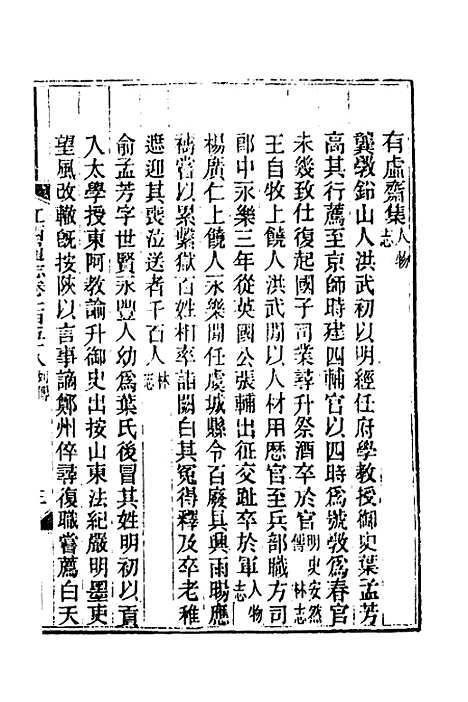 有虛齋集人物志
龔斆鉛山人洪武初以明經任府學教授御史葉孟芳
高其行薦至京師時建四輔官以四時爲號斆爲春官
未幾致仕復起國子司業尋升祭酒卒於官明史安然傳林志
王自牧上饒人洪武閒以人材用歷官至兵部職方司
郎中永樂三年從英國公張輔出征交趾卒於軍人物志
楊廣仁上饒人永樂閒任虞城縣令百廢具興雨暘應
禱嘗以累繫獄百姓相率詣闕白其冤得釋及卒老稚
遮迎其喪泣送者千百人林志
俞孟芳字世賢永豐人幼爲葉氏後冒其姓明初以貢
入太學授東阿教諭升御史出按山東法紀嚴明墨吏
望風改轍旣按陜以言事謫鄭州倅尋復職嘗薦白天
江西通志卷一百五十八 列傳 三